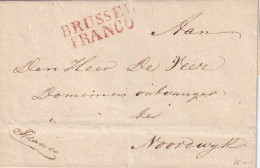 BRUSSEL
FRANCO
Aan
Den Heer De Veer
Domeinen ontvanger
te
Noordwyk
Franco